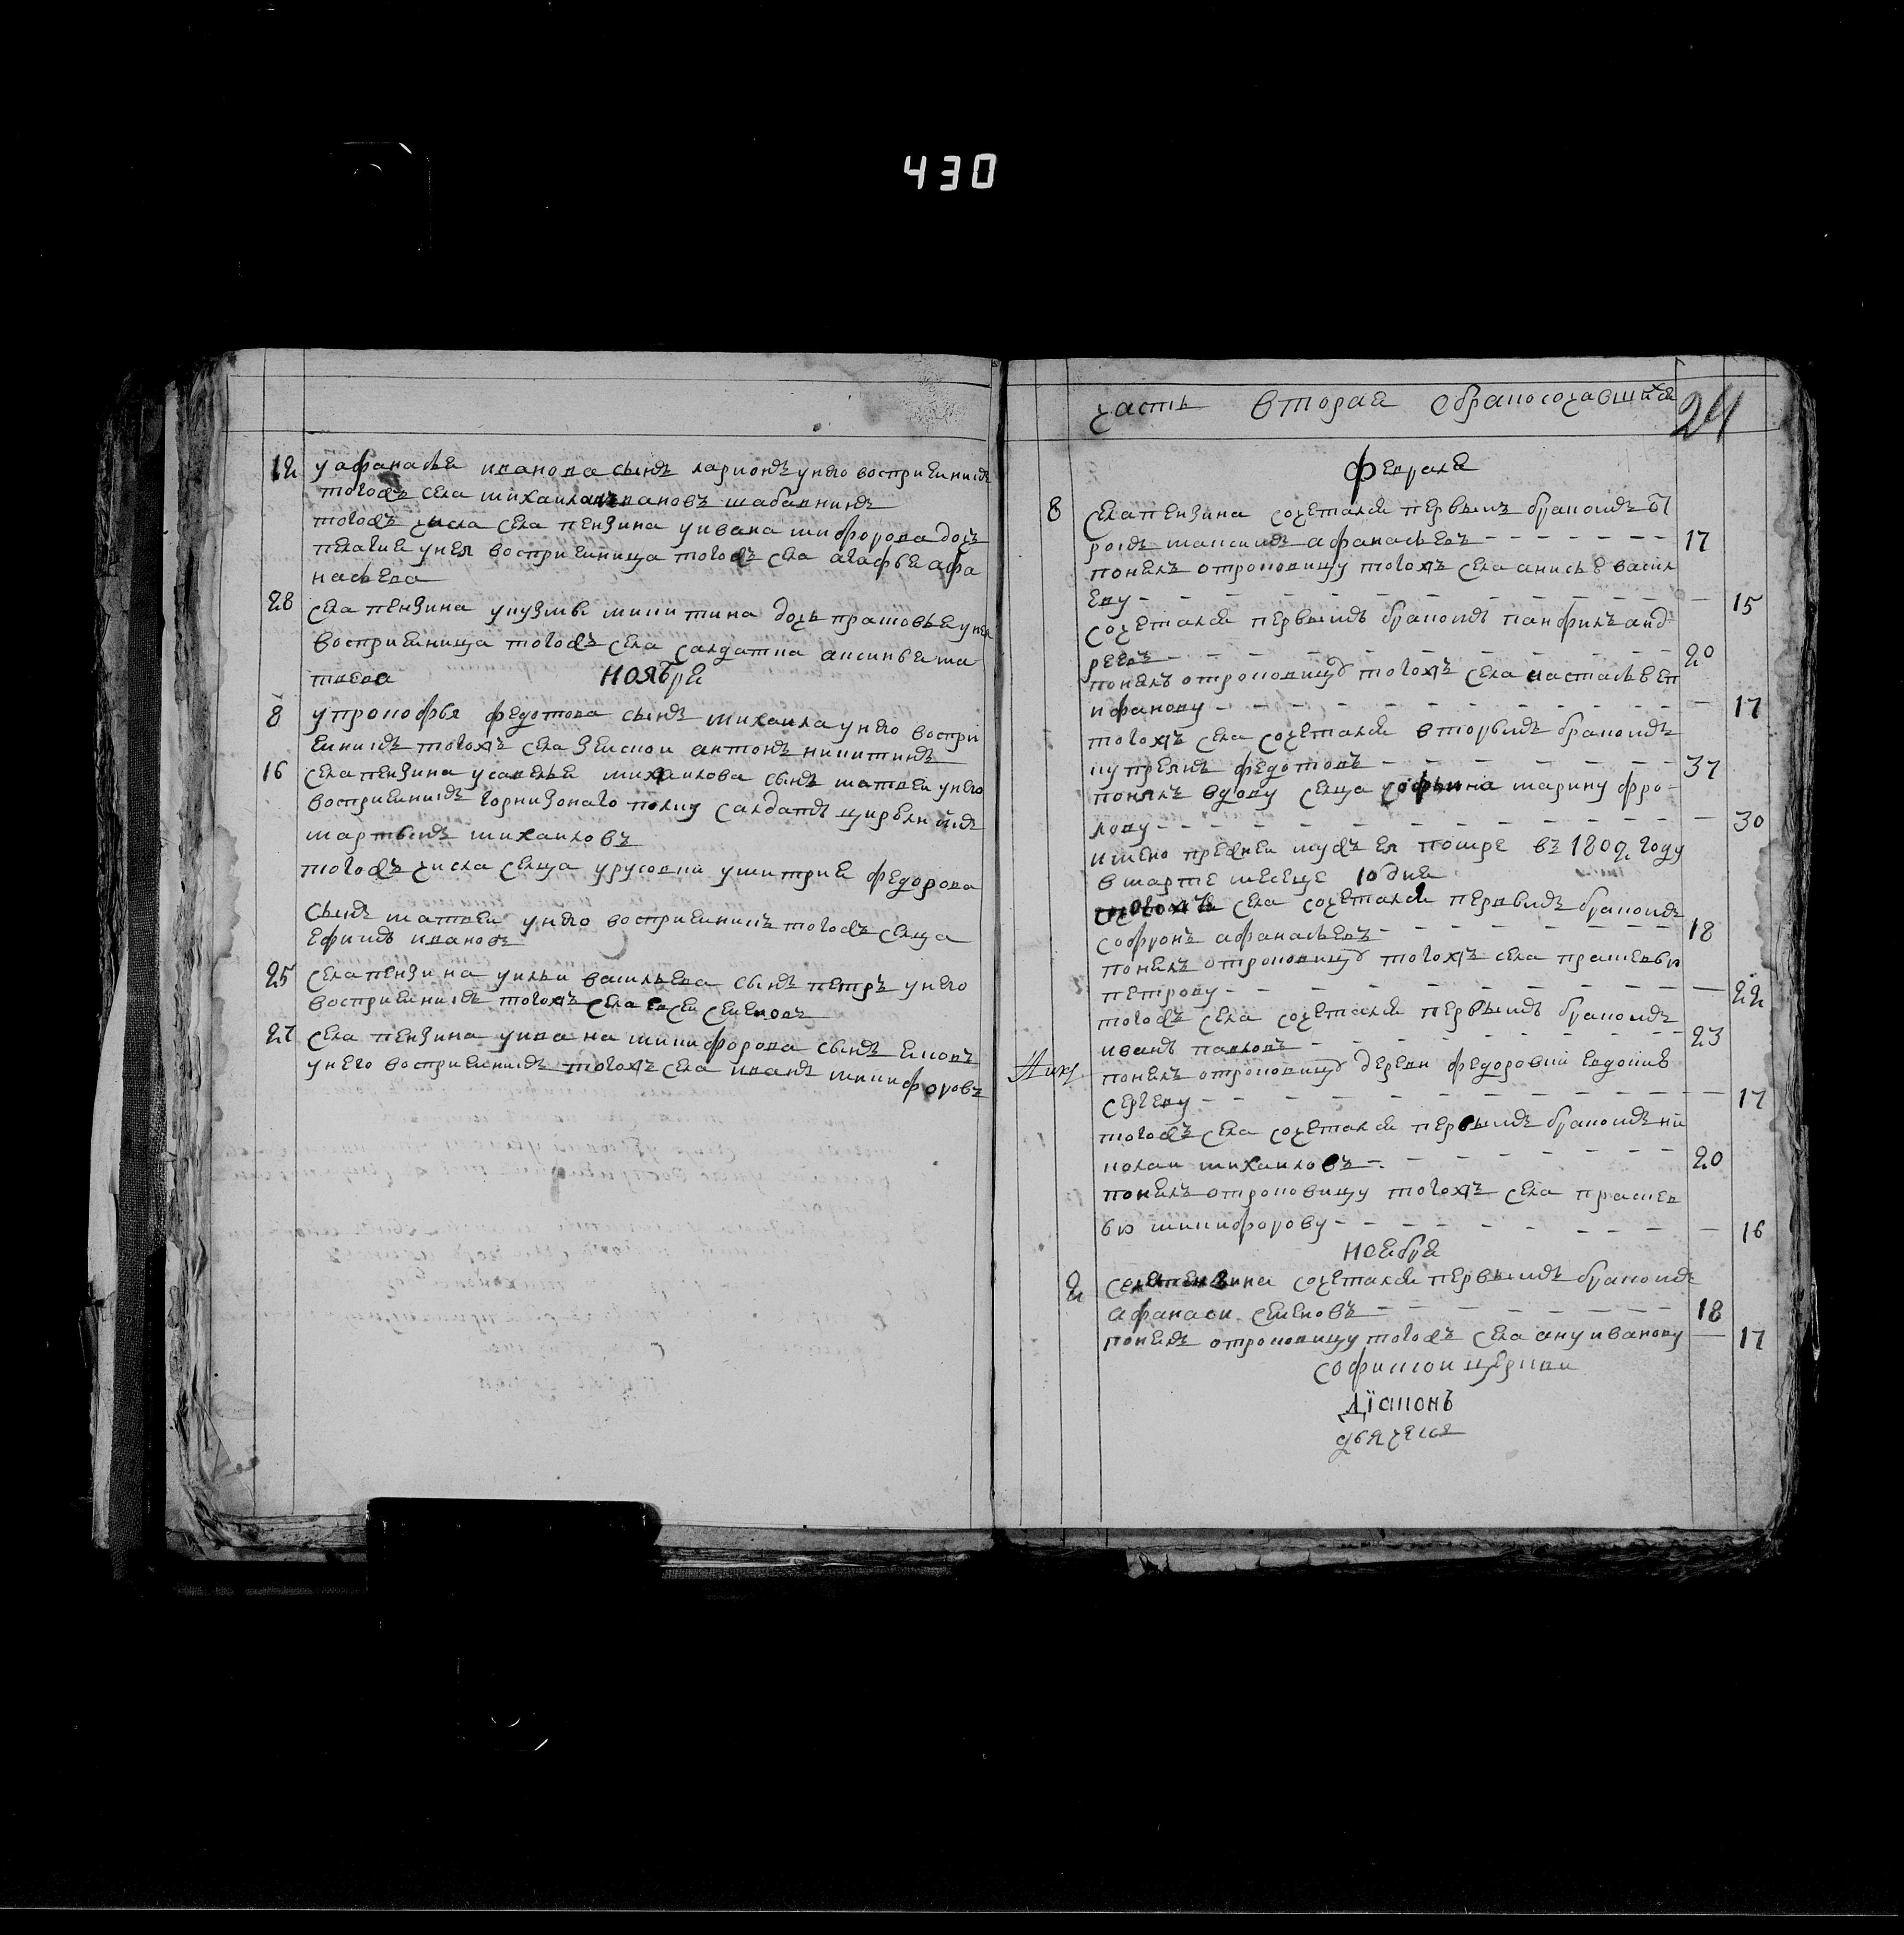 430
12 у афанасья иванова сынъ ларионъ унего восприемникъ
тогожъ села михаила ивановъ шабавникъ
тогожъ числа села пензина уивана микифорова дочь
пелагия унея восприемница тогожъ села агафья афа
насьева
28 села пензина укузмы микитина дочь прасковья унея
восприемница тогожъ села салдатка аксинья ма
твева
ноября
8 упрокофья федотова сынъ михаила унего воспри
емникъ тогожъ села земской антонъ никитинъ
16 села пензина усавелья михаилова сынъ матвеи унего
восприемникъ горнизонаго полку салдатъ цирюлникъ
мартынъ михаиловъ
тогожъ числа селца урусовки умитрия федорова
сынъ матвеи унего восприемникъ тогожъ селца
ефимъ ивановъ
25 села пензина уильи васильева сынъ петръ унего
восприемникъ тогожъ села евсеи семеновъ
27 села пензина уивана микифорова сынъ
унего восприемникъ тогожъ села иванъ микифоровъ
часть вторая обракосочавшихся
24
февраля
8 села пензина сочетался первымъ бракомъ
максимъ афанасьевъ 17
понялъ отроковицу тогожъ села анисью васил
еву 15
сочетался первымъ бракомъ панфилъ анд
реевъ 20
понялъ отроковицу тогожъ села настасью еп
ифанову 17
тогожъ села сочетался вторымъ бракомъ
куприянъ федотовъ 37
понялъ вдову селца марину фро
лову 30
имено преднеи мужъ ея помре въ 1802 году
вмарте месеце 10 дня
тогожъ села сочетался первымъ бракомъ
софронъ афанасьевъ 18
понялъ отроковицу тогожъ села прасковью
петрову 22
тогожъ села сочетался первымъ бракомъ
иванъ павловъ 23
понялъ отроковицу деревни федоровки евдокию
сергеву 17
тогожъ села сочетался первымъ бракомъ ни
колаи михаиловъ 20
понялъ отроковицу тогожъ села праскев
ью микифорову 16
ноября
2 села пензина сочетался первымъ бракомъ
афанаси семеновъ 18
понялъ отроковицу тогожъ села ану иванову 17
софиискои церкви
Дїаконъ